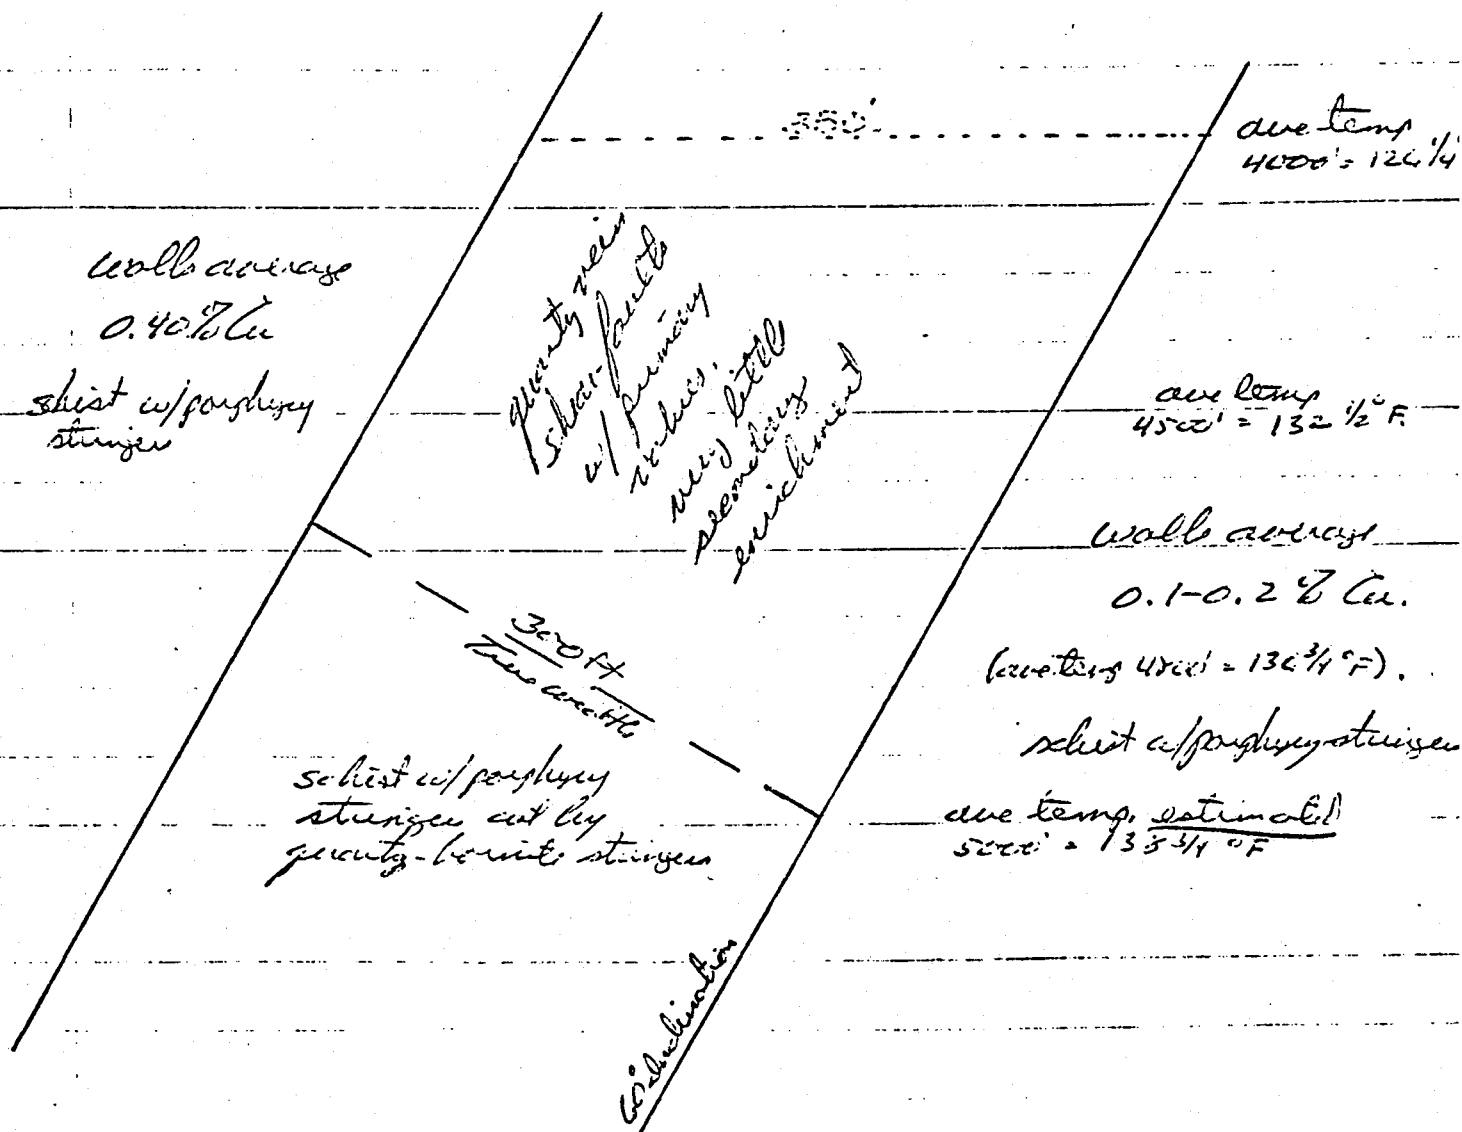 350'
ave temp
4000' = 126 1/4
walls average
0.40% Cu
shist w/porphyry
stringers
quartz vein
shear-faults
w/ primary
values,
very little
secondary
enrichment
ave temp
4500' = 132 1/2° F.
walls average
0.1-0.2 % Cu.
(ave temp 4800' = 136 3/4 °F).
schist w/porphyry stringers
300 ft
True width
schist w/ porphyry
stringers cut by
quartz-bornite stringers
ave temp. estimated
5000' = 138 3/4 °F
60° inclination